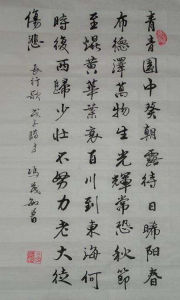 青青園中葵朝露待日晞陽春
布德澤萬物生光輝常恐秋節
至焜黃華葉衰百川到東海何
時復西歸少壯不努力老大徒
傷悲
長行歌 戊子